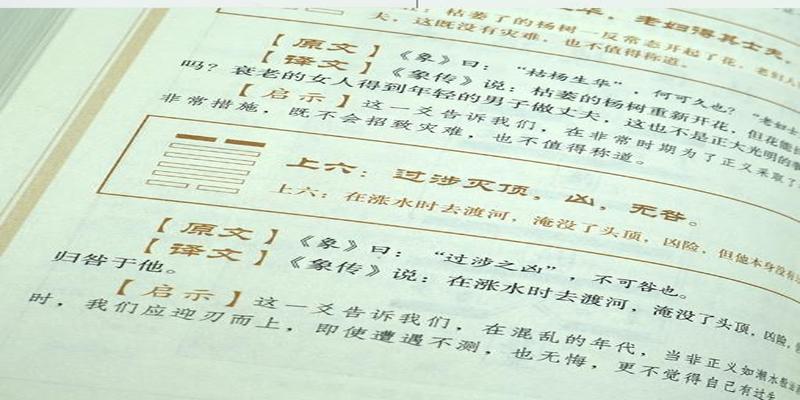 枯萎了的杨树一反常态开起了花，老妇人
华，老妇得其士夫，
夫，这既没有灾难，也不值得称道。
【原文】《象》曰：“枯杨生华”，何可久也？“老妇士
【译文】《象传》说：枯萎的杨树重新开花，但花能
吗？衰老的女人得到年轻的男子做丈夫，这也不是正大光明的
【启示】这一爻告诉我们，在非常时期为了正义采取了
非常措施，既不会招致灾难，也不值得称道。
上六：过涉灭顶，凶，无咎。
上六：在涨水时去渡河，淹没了头顶，凶险，但他本身没有
【原文】《象》曰：“过涉之凶”，不可咎也。
【译文】《象传》说：在涨水时去渡河，淹没了头顶，凶险，
归咎于他。
【启示】这一爻告诉我们，在混乱的年代，当非正义如潮水般
时，我们应迎刃而上，即使遭遇不测，也无悔，更不觉得自己有过